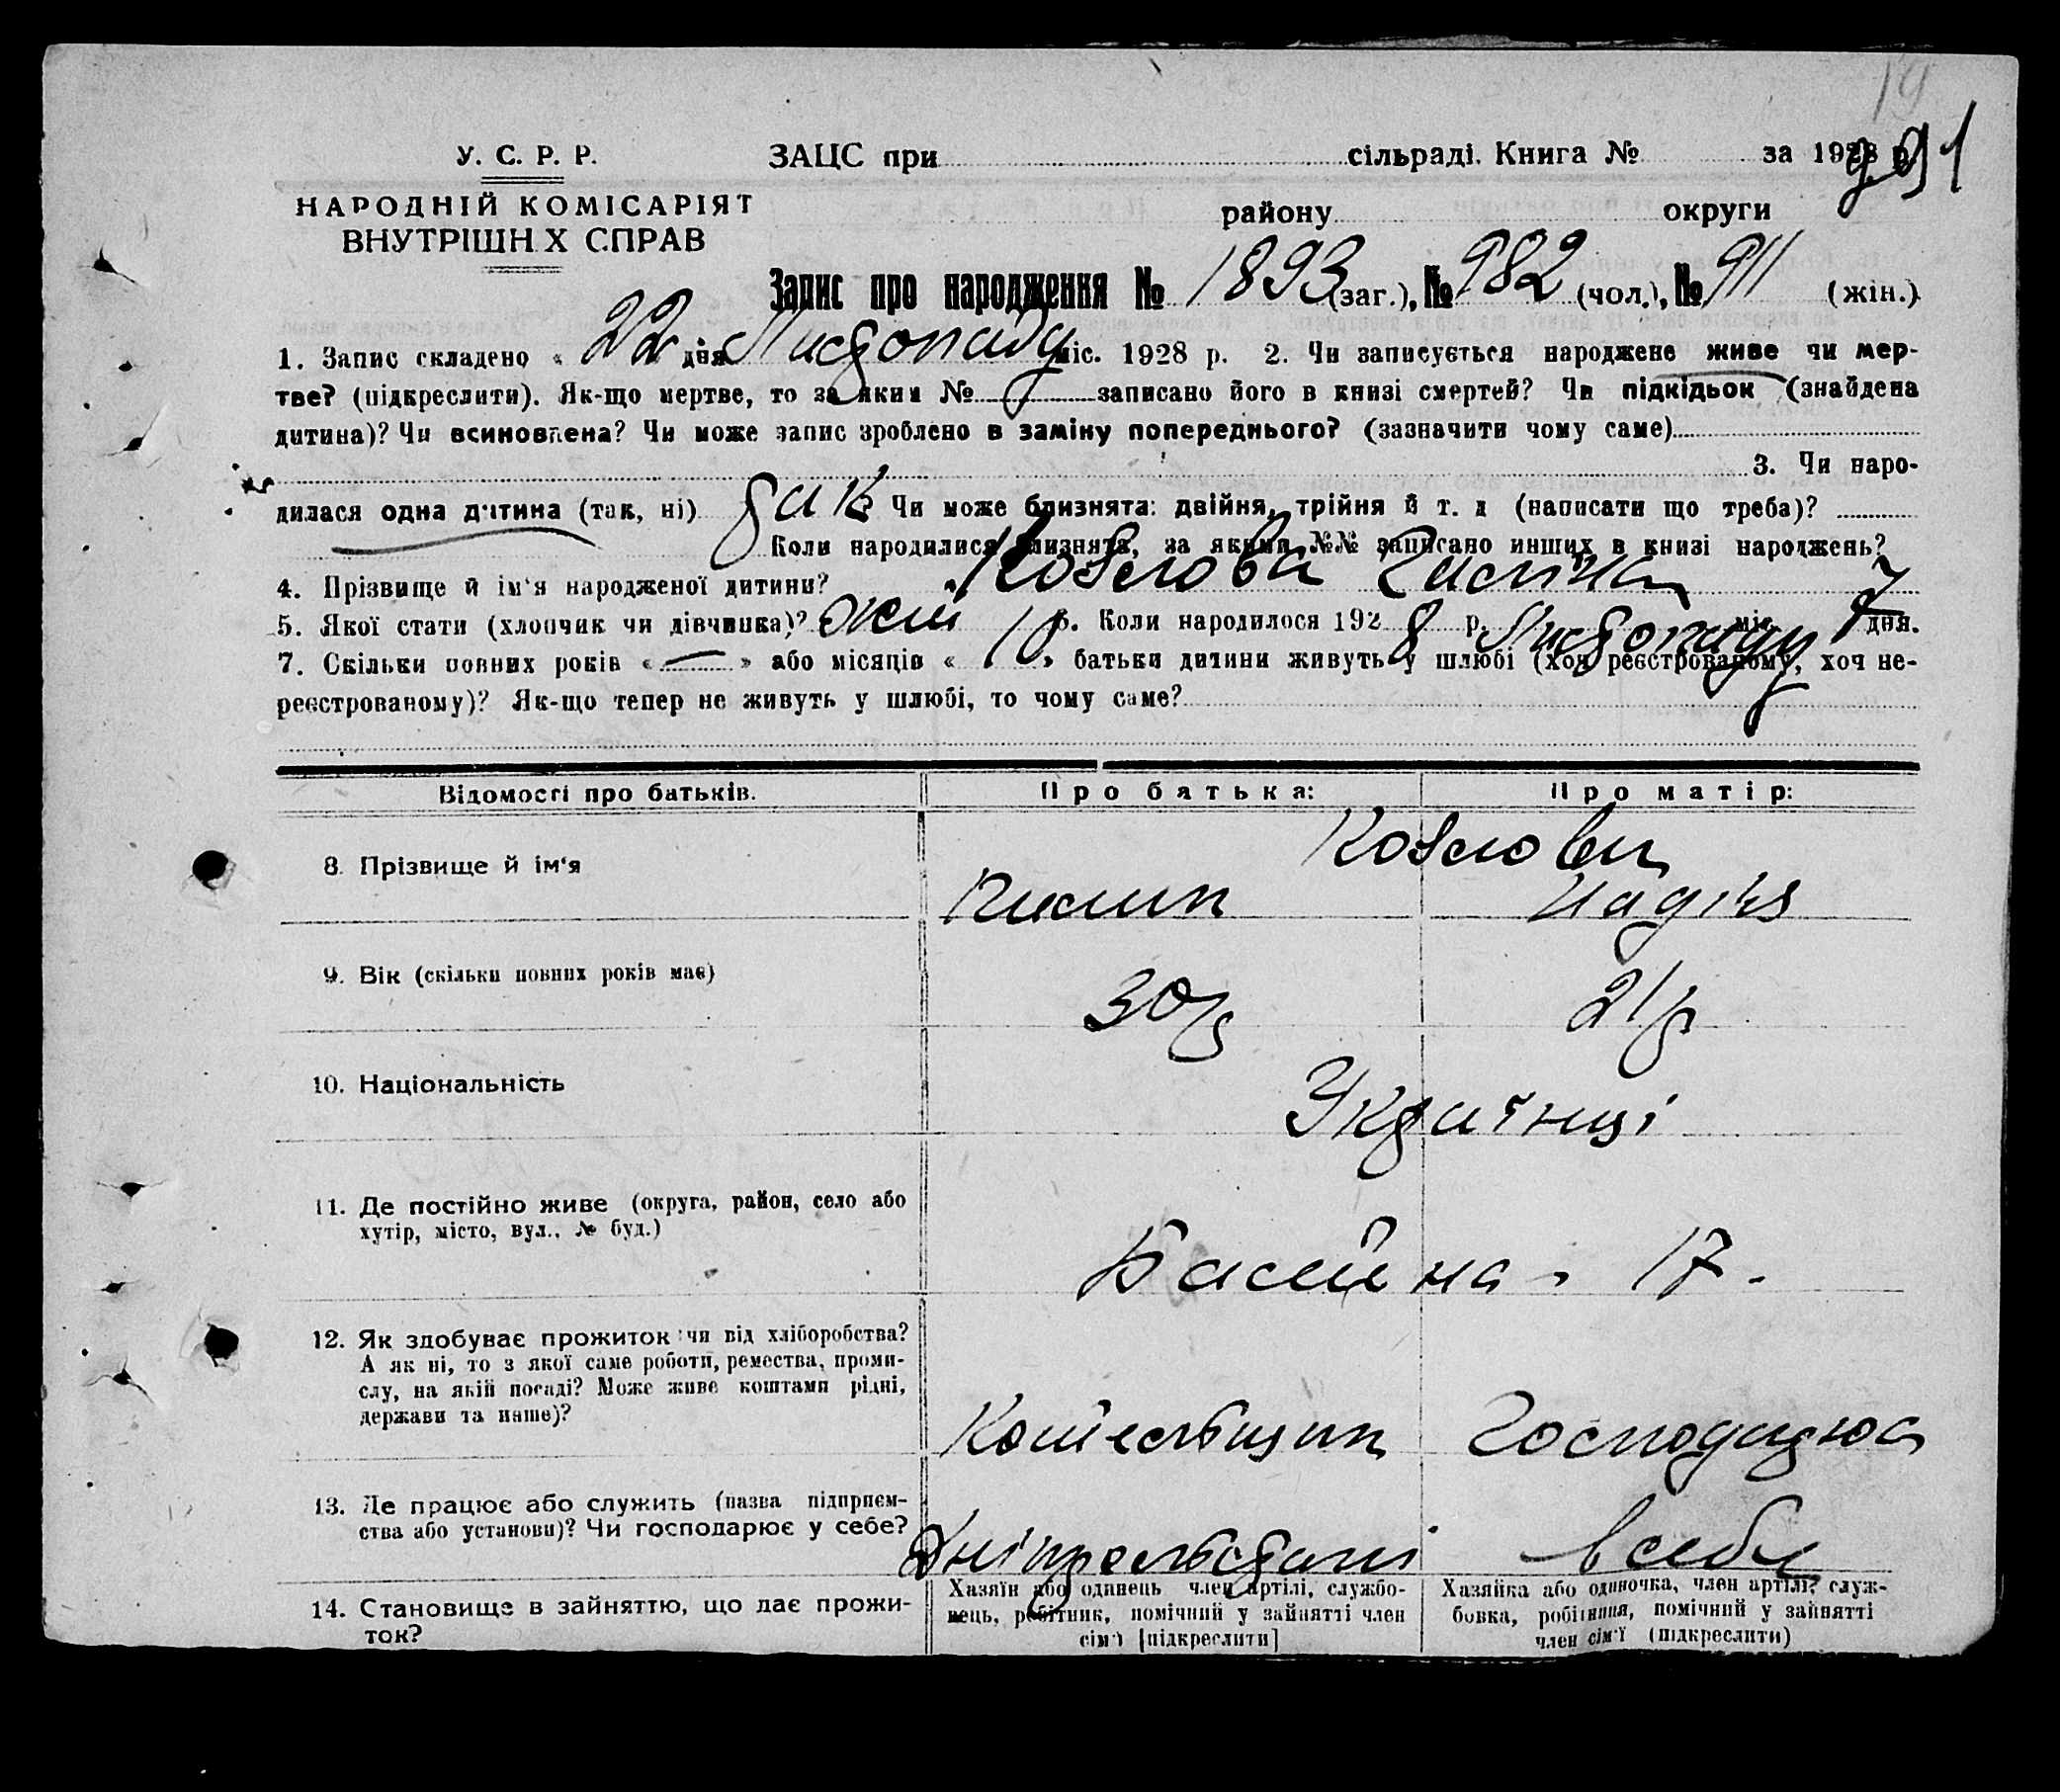 19
991
У. С. Р. Р.
ЗАЦС при сільраді. Книга № за 1928 р.
НАРОДНІЙ КОМІСАРІЯТ
ВНУТРІШН Х СПРАВ
району округи
Запис про народження № 1893 (заг.), № 982 (чол.), № 911 (жін.)
1. Запис складено « 22 дня Листопаду міс. 1928 р. 2. Чи записується народжене живе чи мер-
тве? (підкреслити). Як-що мертве, то за яким № записано його в книзі смертей? Чи підкідьок (знайдена
дитина)? Чи всиновлена? Чи може запис зроблено в заміну попереднього? (зазначити чому саме)
3. Чи наро-
дилася одна дитина (так, ні) так Чи може близнята: двійня, трійня й т. д (написати що треба)?
Коли народилися близнята, за якими №№ записано инших в книзі народжень?
4. Прізвище й ім'я народженої дитини? Козлова
5. Якої стати (хлопчик чи дівчинка)? жін 6. Коли народилося 1928 р. Листопаду міс. 7 дня.
7. Скільки повних років « — » або місяців « 10 » батьки дитини живуть у шлюбі (хоч реєстрованому, хоч не-
реєстрованому)? Як-що тепер не живуть у шлюбі, то чому саме?
Відомості про батьків. Про батька: Про матір:
Козлови
8. Прізвище й ім'я Пилип Надія
9. Вік (скільки повних років має) 30р 21р
10. Національність Українці
11. Де постійно живе (округа, район, село або
хутір, місто, вул., № буд.)
Басейна - 17 -
12. Як здобуває прожиток: чи від хліборобства?
А як ні, то з якої саме роботи, ремества, проми-
слу, на якій посаді? Може живе коштами рідні,
держави та инше)?
Котельщик Господуюча
13. Де працює або служить (назва підприєм-
ства або установи)? Чи господарює у себе?
Дніпрельстані в себе
14. Становище в зайняттю, що дає прожи-
ток?
Хазяїн або одинець член артілі, службо-
вець, робітник, помічний у зайнятті член
сім'ї [підкреслити]
Хазяйка або одиночка, член артілі, служ-
бовка, робітниця, помічний у зайнятті
член сім'ї (підкреслити)